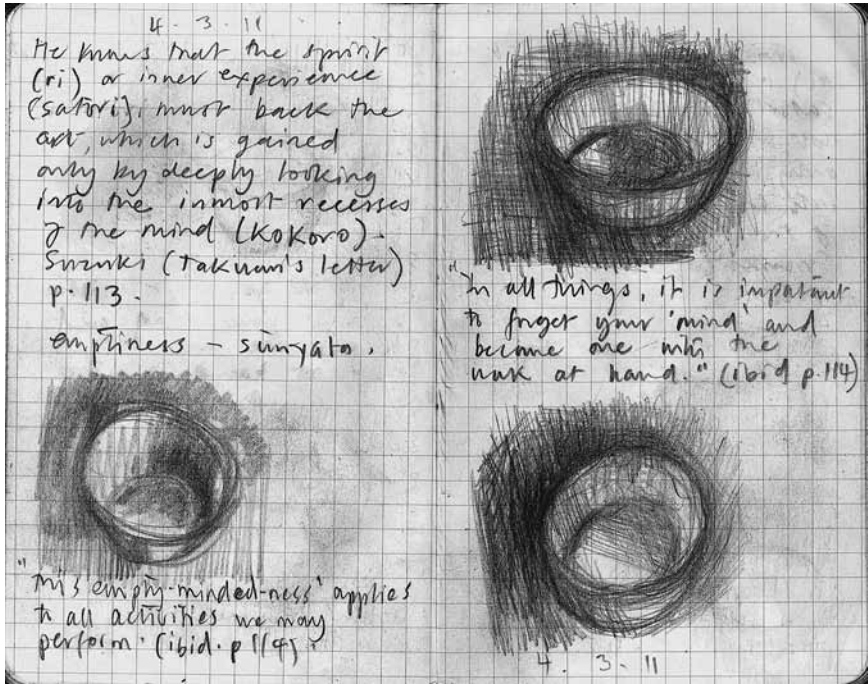 4 . 3 . 11
He knows that the spirit
(ri) or inner experience
(satori), must back the
art, which is gained
only by deeply looking
into the inmost recesses
of the mind (Kokoro).
Suzuki (Takuan's letter)
p. 113.
emptiness – sūnyata.
"This 'empty-minded-ness' applies
to all activities we may
perform. (ibid. p 114).
"In all things, it is important
to forget your 'mind' and
become one with the
work at hand." (ibid p. 114)
4 . 3 . 11